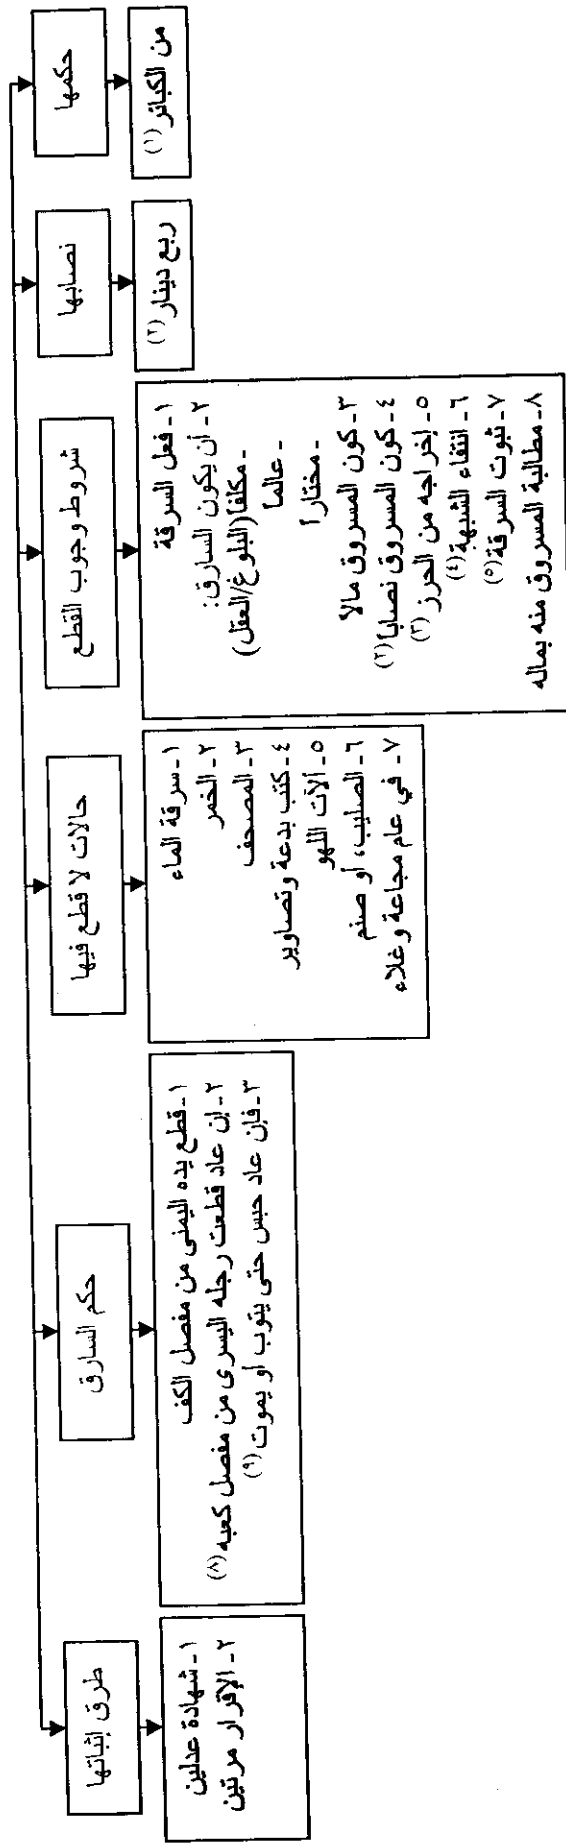 حكمها
من الكبائر (١)
نصابها
ربع دينار (٢)
شروط وجوب القطع
١- فعل السرقة
٢- أن يكون السارق:
- مكلفاً (البلوغ/العقل)
- عالماً
- مختاراً
٣- كون المسروق مالا
٤- كون المسروق نصابا (٢)
٥- إخراجه من الحرز (٣)
٦- انتفاء الشبهة (٤)
٧- ثبوت السرقة (٥)
٨- مطالبة المسروق منه بماله
حالات لا قطع فيها
١- سرقة الماء
٢- الخمر
٣- المصحف
٤- كتب بدعة وتصاوير
٥- آلات اللهو
٦- الصليب، أو صنم
٧- في عام مجاعة وغلاء
حكم السارق
١- قطع يده اليمنى من مفصل الكف
٢- إن عاد قطعت رجله اليسرى من مفصل كعبه (٨)
٣- فإن عاد حبس حتى يتوب أو يموت (٩)
طرق إثباتها
١- شهادة عدلين
٢- الإقرار مرتين